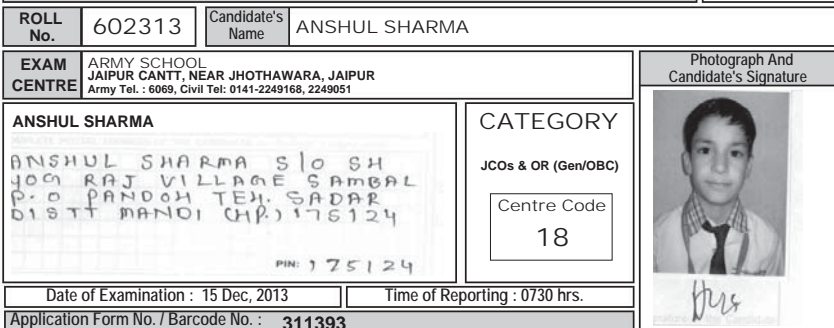 ROLL No. 602313 Candidate's Name ANSHUL SHARMA
EXAM CENTRE
ARMY SCHOOL
JAIPUR CANTT, NEAR JHOTHAWARA, JAIPUR
Army Tel. : 6069, Civil Tel: 0141-2249168, 2249051
Photograph And
Candidate's Signature
ANSHUL SHARMA
ANSHUL SHARMA S/O SH
YOG RAJ VILLAGE SAMBAL
P.O PANDOH TEH. SADAR
DISTT MANDI (HP.) 175124
PIN: 175124
CATEGORY
JCOs & OR (Gen/OBC)
Centre Code
18
Date of Examination : 15 Dec, 2013 Time of Reporting : 0730 hrs.
Application Form No. / Barcode No. : 311393